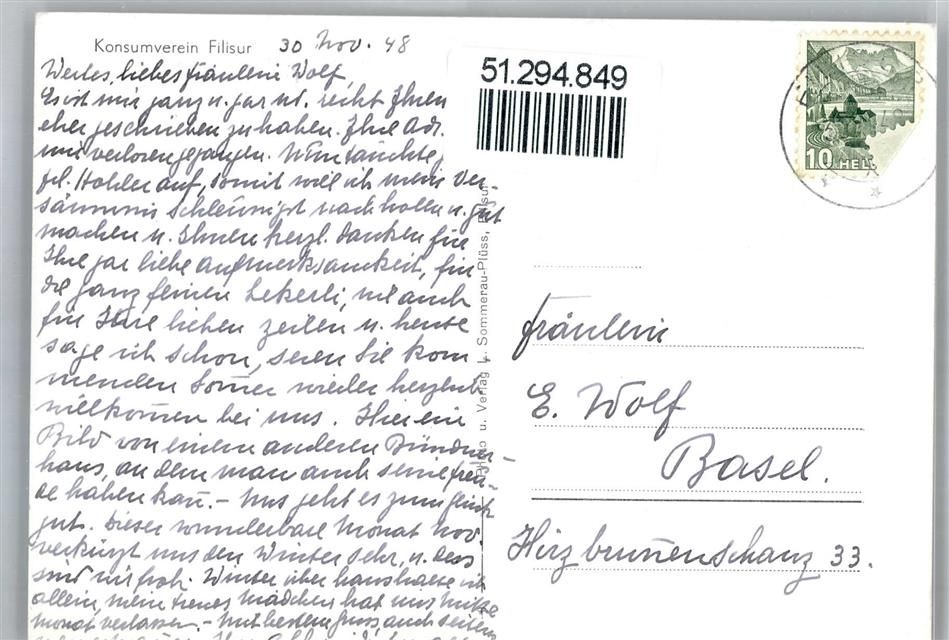 Konsumverein Filisur 30 Nov. 48
Wertes, liebes Fräulein Wolf,
Es ist mir ganz u. gar nt. recht Ihnen
eher geschrieben zu haben. Ihre Adr.
mir verloren gegangen. Nun tauchte,
frl. Hohler auf, somit will ich mein Ver-
säumnis schleunigst nachhollen u. gut
machen u. Ihnen herzl. danken für
Ihre gar liebe Aufmerksamkeit, für
die ganz feinen Lekerli, wie auch
für Ihre lieben Zeilen u. heute
sage ich schon, seien Sie kom
menden Somer wieder herzlich
willkomen bei uns. Hier ein
Bild von einem anderen Bündner-
haus, an dem man auch seine Freu-
de haben kan. – Uns geht es zum Glück
gut. Dieser wunderbare Monat Nov.
verkürzt uns den Winter sehr, u. dess
sind wir froh. Winter über haushalte ich
allein, mein treues Mädchen hat uns Mitte
Monat verlassen. – Mit bestem Gruss auch seitens
51.294.849
Photo u. Verlag L. Sommerau-Plüss, Filisur
10 HELV
Fräulein
E. Wolf
Basel.
Hirzbrunenschanz 33.